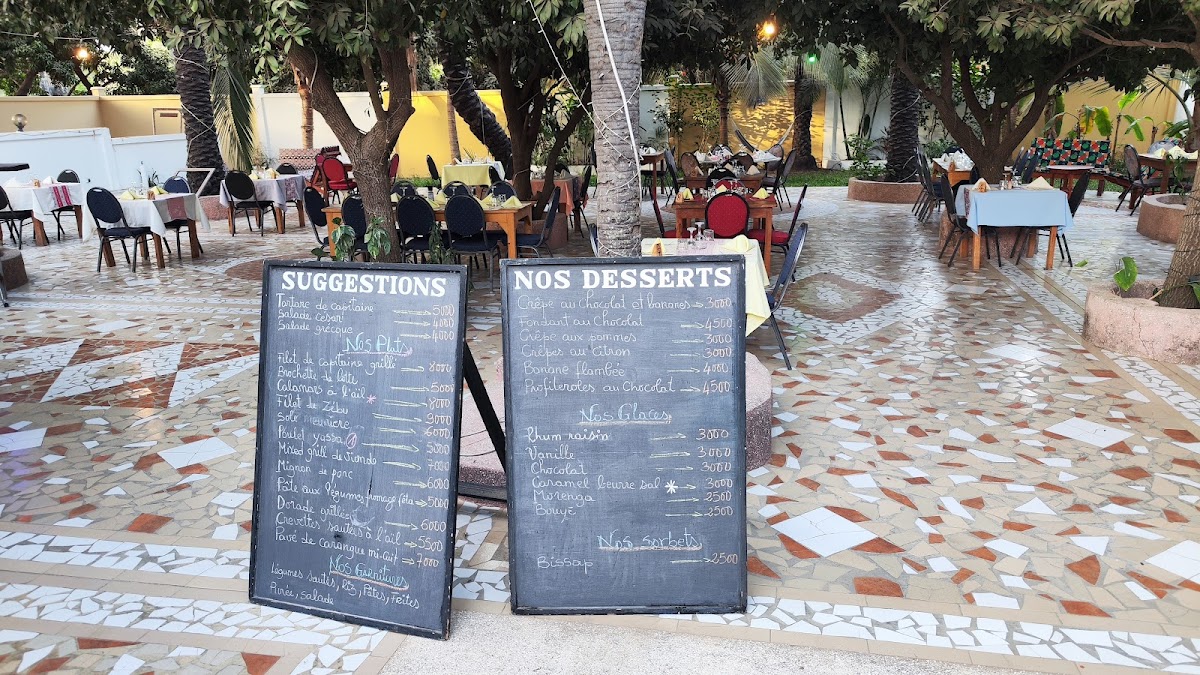 SUGGESTIONS
Tartare de capitaine → 5000
Salade cesar → 4000
Salade grècque → 4000
Nos Plats
Filet de capitaine grillé → 8000
Brochette de lôtte → 5000
Calamars à l'ail * → 8000
Filet de Zébu → 9000
Sole meuniere → 6000
Poulet yassa → 5000
Mixed grill de viande → 7000
Mignon de porc → 6000
Pâte aux légumes, fromage féta → 5000
Dorade grillée → 6000
Crevettes sautées à l'ail → 5500
Pavé de carangue mi-cuit → 7000
Nos Garnitures
légumes sautés, Riz, Pâtes, Frites
Purée, salade
NOS DESSERTS
Crêpe au Chocolat et bananes → 3000
Fondant au Chocolat → 4500
Crêpe aux pommes → 3000
Crêpes au Citron → 3000
Banane flambée → 4000
Profiteroles au Chocolat → 4500
Nos Glaces
Rhum raisin → 3000
Vanille → 3000
Chocolat → 3000
Caramel beurre salé * → 3000
Morenga → 2500
Bouye → 2500
Nos sorbets
Bissap → 2500